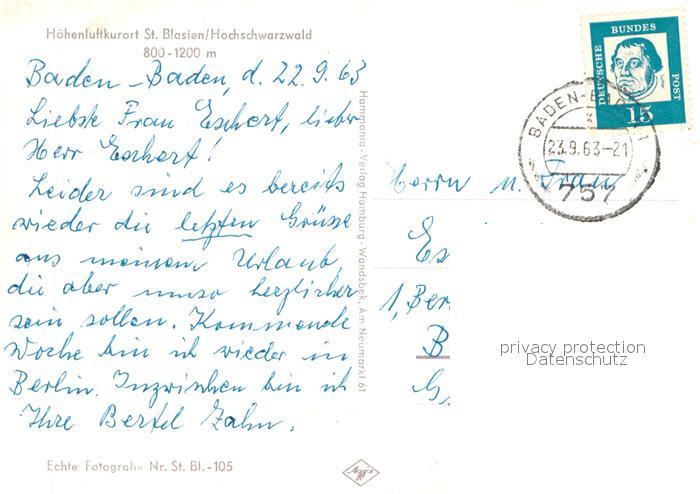 Höhenluftkurort St. Blasien/Hochschwarzwald
800-1200 m
Baden-Baden, d. 22.9.63
Liebste Frau Eschert, lieber
Herr Eschert!
Leider sind es bereits
wieder die letzten Grüsse
aus meinem Urlaub,
die aber umso herzlicher
sein sollen. Kommende
Woche bin ich wieder in
Berlin. Inzwischen bin ich
Ihre Bertel Zahn.
Echte Fotografie Nr. St. Bl.-105
Hammonia-Verlag Hamburg-Wandsbek, Am Neumarkt 61
Agfa
DEUTSCHE BUNDES POST
15
BADEN-BADEN 1
23.9.63-21
757
Herrn u. Frau
Es
1, Ber
B
G.
privacy protection
Datenschutz